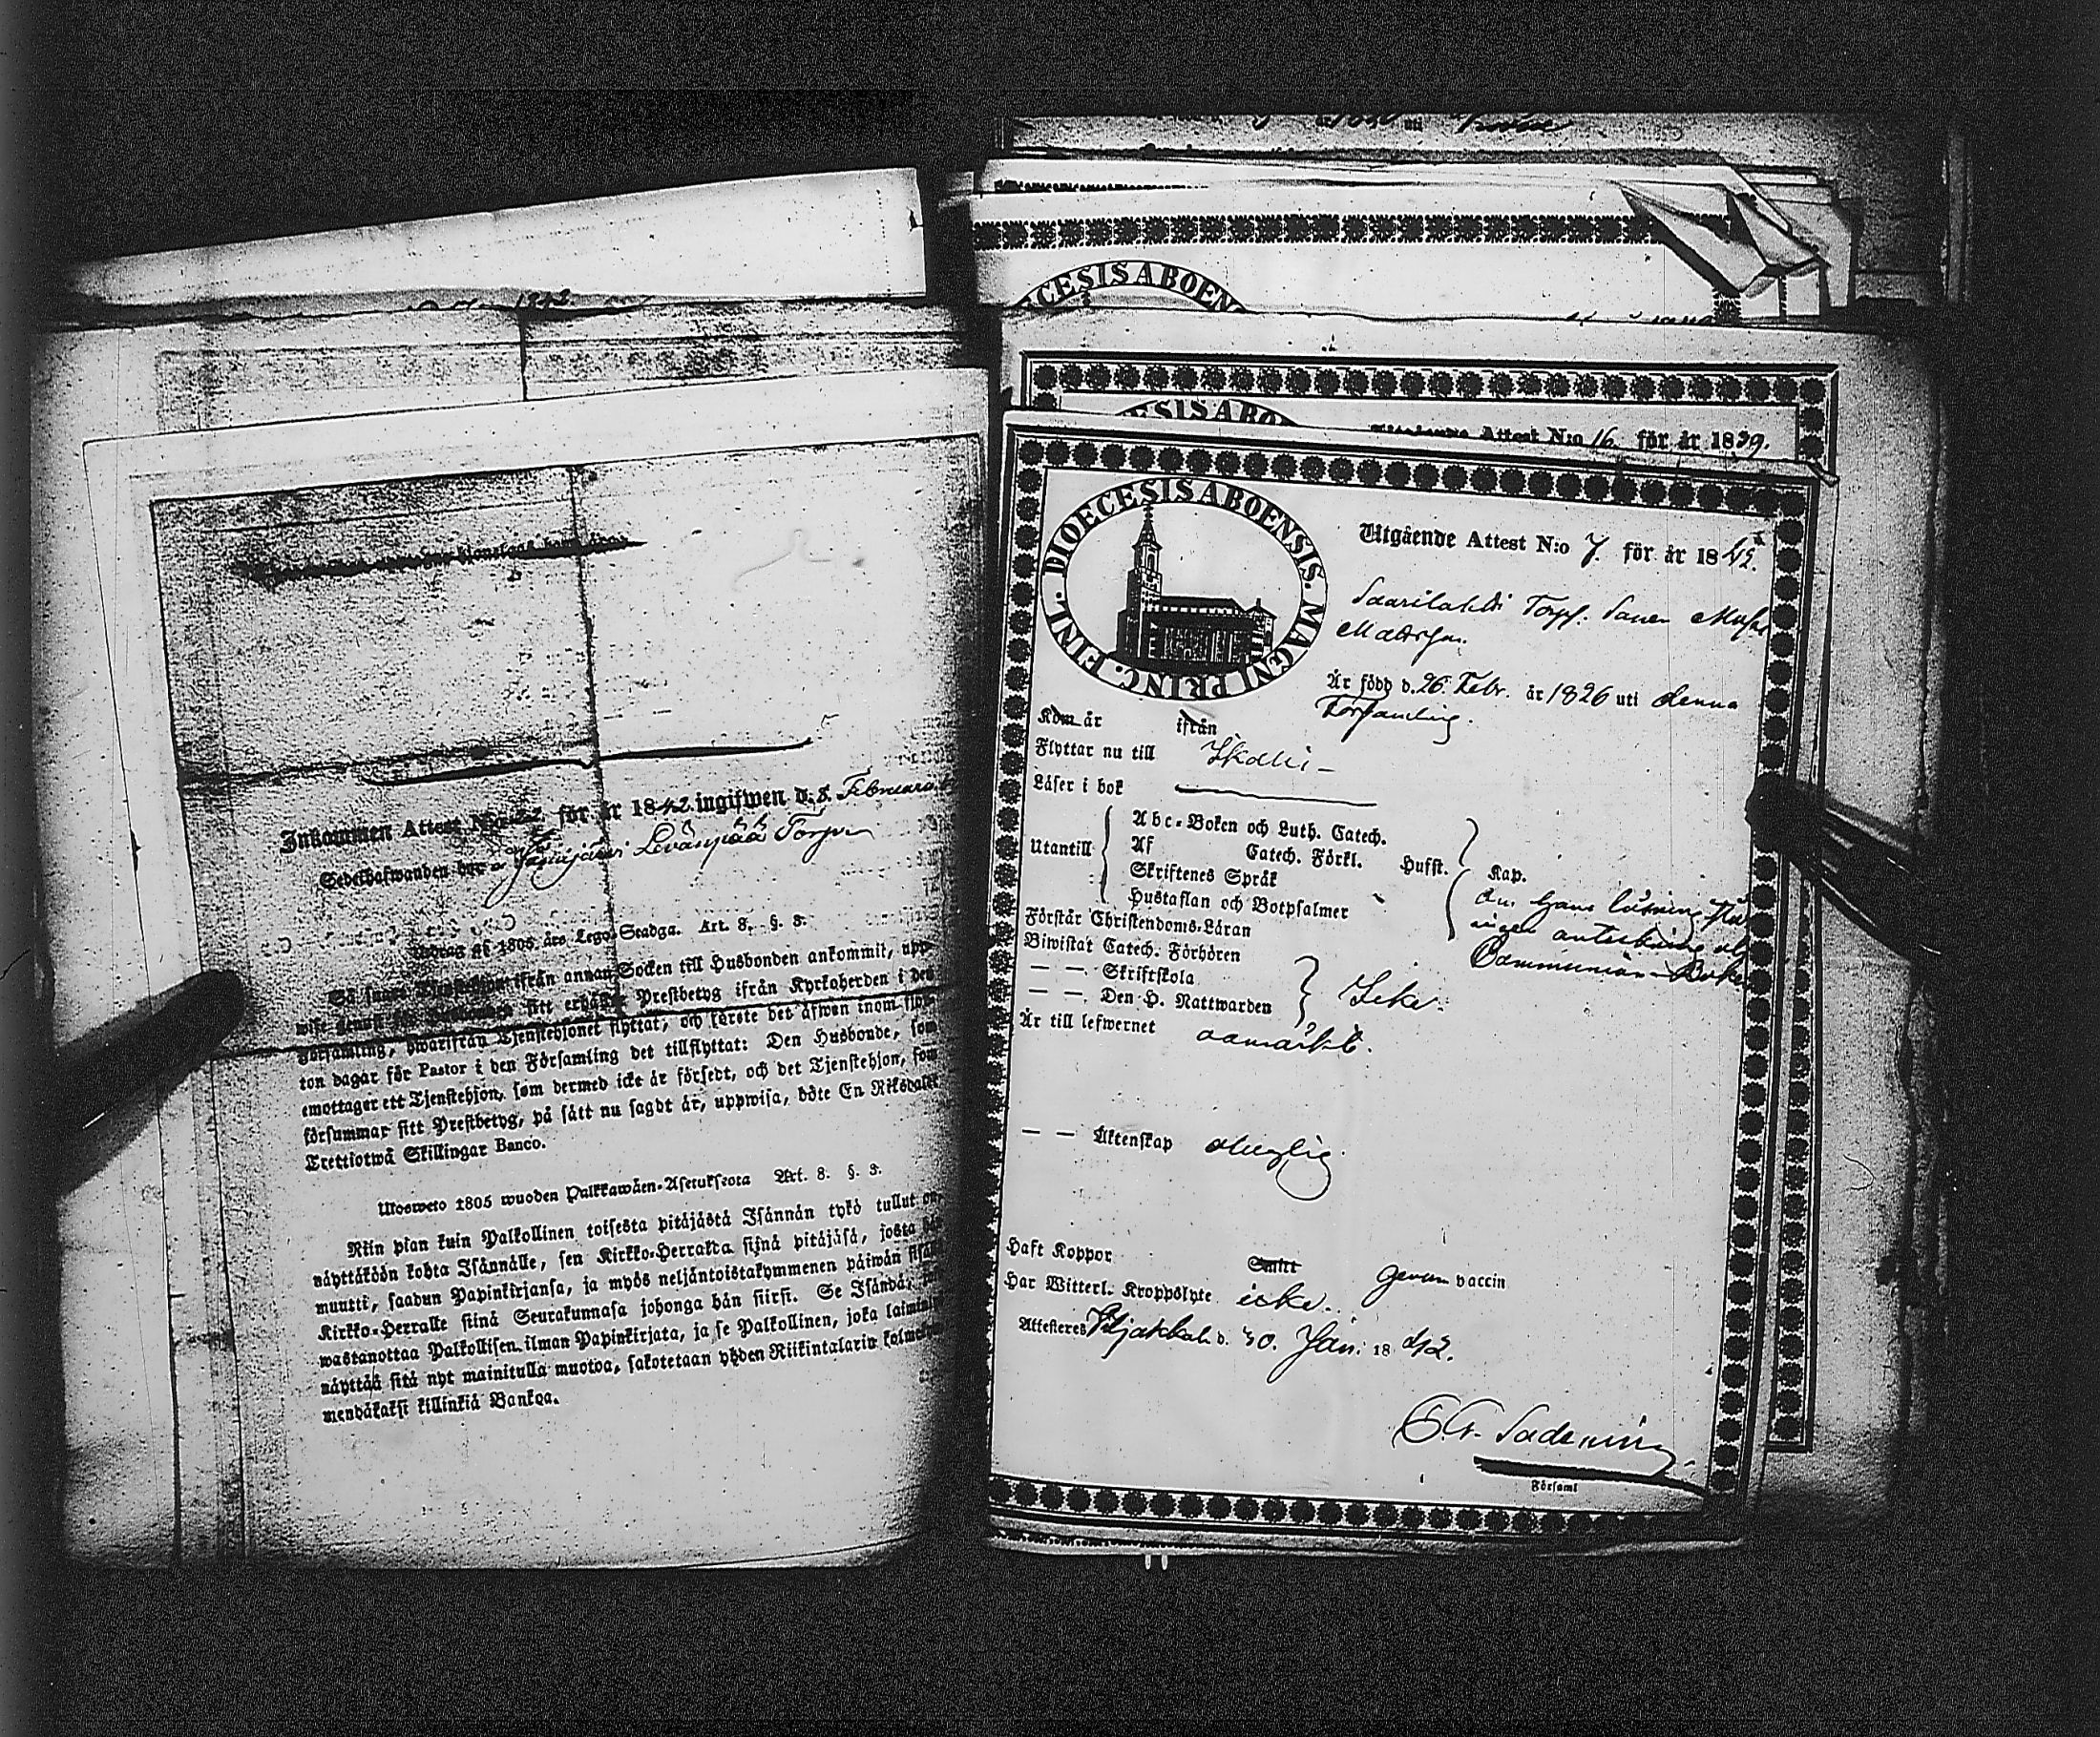 1842.
Inkommen Attest N:o för år 1842 ingifwen d. 8. Februari
Sedelhafwanden bor Torp
Utdrag af 1805 års Lego-Stadga. Art. 8. §. 3.
Så snart Tjenstehjon ifrån annan Socken till Husbonden ankommit, upp-
wise genast för Husbonden sitt erhållne Prestbetyg ifrån Kyrkoherden i den
Församling, hwarifrån Tjenstehjonet flyttat, och förete det äfwen inom fjor-
ton dagar för Pastor i den Församling det tillflyttat: Den Husbonde, som
emottager ett Tjenstehjon, som dermed icke är försedt, och det Tjenstehjon, som
försummar sitt Prestbetyg, på sätt nu sagdt är, uppwisa, böte En Riksdaler
Trettiotwå Skillingar Banco.
Ulosweto 1805 wuoden Palkkawäen-Asetuksesta Art. 8. §. 3.
Niin pian kuin Palkollinen toisesta pitäjästä Isännän tykö tullut on,
näyttäköön kohta Isännälle, sen Kirkko-Herralta siinä pitäjäsä, josta hän
muutti, saadun Papinkirjansa, ja myös neljäntoistakymmenen päiwän sisällä
Kirkko-Herralle siinä Seurakunnasa johonga hän siirsi. Se Isändä, joka
wastanottaa Palkollisen ilman Papinkirjata, ja se Palkollinen, joka laiminlyö
näyttää sitä nyt mainitulla muotoa, sakotetaan yhden Riikintalarin kolme-
mendäkaksi killinkiä Bankoa.
uti
CESIS ABOEN
ESIS ABO
Utgående Attest N:o 16 för år 1839.
DIOECESIS ABOENSIS. MAGNI PRINC. FINL.
Utgående Attest N:o 7. för år 1842.
Torp. Sonen
Mattsson.
Är född d. 26. Febr. år 1826 uti denna
Församling.
Kom år ifrån
Flyttar nu till Ikalis
Läser i bok
Utantill
Abc-Boken och Luth. Catech.
Af Catech. Förkl. Hufst. Kap.
Skriftenes Språk
Hustaflan och Botpsalmer
Om hans läsning
ingen anteckning
Communion-Boken
Förstår Christendoms-Läran
Biwistat Catech. Förhören
— — Skriftskola
— — Den H. Nattwarden
Icke
Är till lefwernet oanmärkt.
— — Äktenskap oduglig
Haft Koppor Smitt genom vaccin
Har Witterl. Kroppslyte icke.
Attesteras Wiljakkala d. 30. Jan. 1842.
Församl